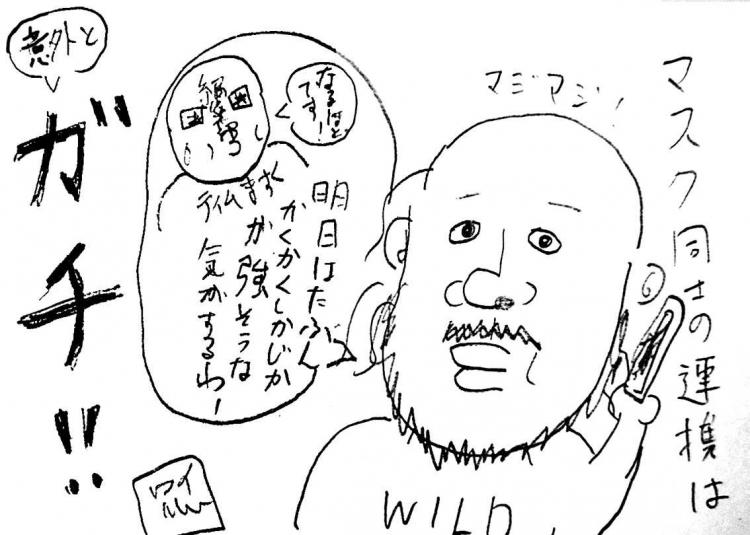 マスク同士の連携は
マジマジ!
WILD
明日はたぶん
かくかくしかじか
が強そうな
気がするわー
なるほどです!
ティムますく
意外と
ガチ!!